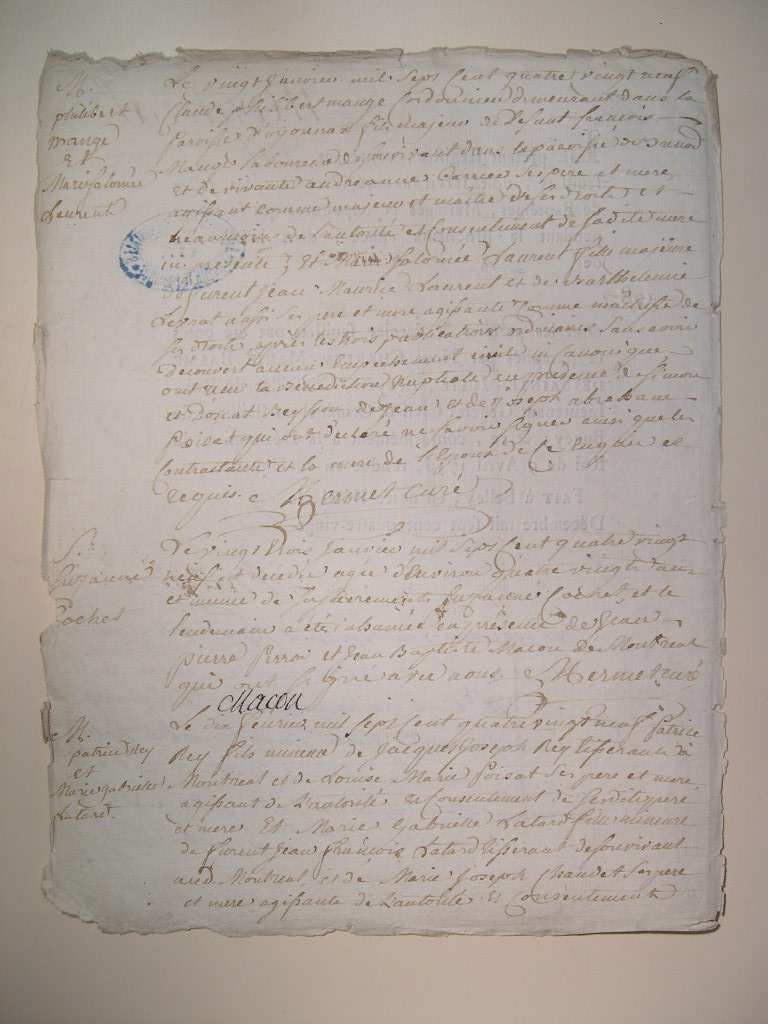 M.
philibert
mange
et
Marie Salomée
Laurent
Le vingt Janvier mil sept cent quatre vingt neuf
Claude philibert mange Cordonnier demeurant dans la
paroisse d'oyonnax fils majeur de defunt françois
Mange laboureur de son vivant dans la paroisse de
et de vivante andreanne ses pere et mere
agissant comme majeur et maitre de ses droits et
neanmoins de l'autorité et Consentement de sa dite mere
ici presente, Et Marie Salomée Laurent fille majeure
de furent jean Maurice Laurent et de Barthelemie
aussi ses pere et mere agissante comme maitresse de
ses droits, après les trois publications ordinaires sans avoir
decouvert aucun Empechement civil ni canonique
ont reçu la benediction nuptiale en presence de simon
et donat Beysson de jean et de joseph abraham
poisat qui ont declaré ne savoir signer ainsi que les
Contractants et la mere de l'Epoux de ce Enquis et
requis. Mermet curé
S.
Suzanne
Cochet
Le vingt trois Janvier mil sept cent quatre vingt
neuf est decedée agée d'Environ quatre vingt ans
et munie de Sacrements Suzanne Cochet, et le
lendemain a été inhumée en presence de Jean
pierre perrin et Jean Baptiste Macon de Montreal
qui ont signé avec nous. Mermet curé
Macon
M.
patrice Rey
et
Marie gabrielle
Latard.
Le dix fevrier mil sept cent quatre vingt neuf patrice
Rey fils mineur de Jacques Joseph Rey tisserant à
Montreal et de Louise Marie poisat ses pere et mere
agissant de l'autorité et Consentement de ses dits pere
et mere Et Marie Gabrielle Latard fille mineure
de furent Jean françois Latard tisserant de son vivant
aud. Montreal et de Marie Joseph Chanet ses pere
et mere agissante de l'autorité et Consentement